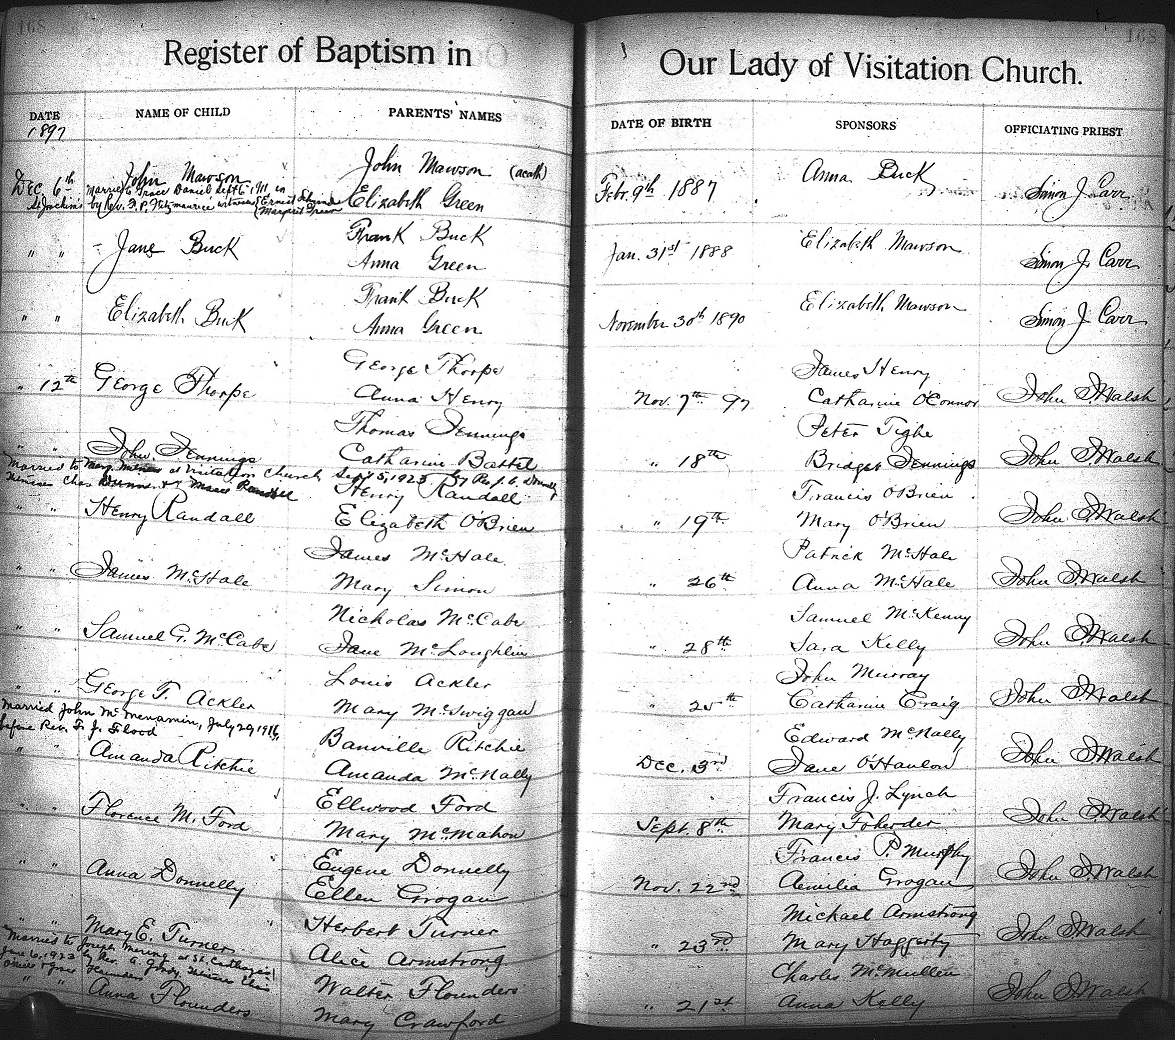 168
Register of Baptism in
Our Lady of Visitation Church.
168
DATE NAME OF CHILD PARENTS' NAMES DATE OF BIRTH SPONSORS OFFICIATING PRIEST
1897
John Mawson (acath) Anna Buck
Dec. 6th John Mawson Feb. 9th 1887 Simon J. Carr
Married to Grace Daniel Sept 6 1911 in
St Joachim's by Rev. F. P. Fitzmaurice witnesses Ernest
Margaret
Elizabeth Green
Frank Buck Elizabeth Mawson
" " Jane Buck Jan. 31st 1888 Simon J. Carr
Anna Green
Frank Buck Elizabeth Mawson
" " Elizabeth Buck November 30th 1890 Simon J. Carr
Anna Green
George Thorpe James Henry
" 12th George Thorpe Anna Henry Nov. 7th 97 Catharine O'Connor John J. Walsh
Thomas Jennings Peter Tighe
" John Jennings Catharine Battel " 18th Bridget Jennings John J. Walsh
Married to Mary at Visitation Church Sept 5, 1923 by Rev J. C. Donnelly
Witnesses Chas Dunne & Marie Randell
Henry Randall Francis O'Brien
" " Henry Randall Elizabeth O'Brien " 19th Mary O'Brien John J. Walsh
James McHale Patrick McHale
" " James McHale Mary Simon " 26th Anna McHale John J. Walsh
Nicholas McCabe Samuel McKenny
" " Samuel G. McCabe Jane McLoughlin " 28th Sara Kelly John J. Walsh
Louis Ackler John Murray
" " George T. Ackler Mary McSwiggan " 25th Catharine Craig John J. Walsh
Married John McMenamin, July 29, 1916
before Rev. Fr. J. Flood
Banville Ritchie Edward McNally
" " Amanda Ritchie Amanda McNally Dec. 3rd Jane O'Hanlon John J. Walsh
Ellwood Ford Francis J. Lynch
" " Florence M. Ford Mary McMahon Sept. 8th Mary John J. Walsh
Eugene Donnelly Francis P. Murphy
" " Anna Donnelly Ellen Grogan Nov. 22nd Amelia Grogan John J. Walsh
Herbert Turner Michael Armstrong
" " Mary E. Turner Alice Armstrong " 23rd Mary Haggerty John J. Walsh
Married to Joseph at St.
June 6, 1923 by Rev. A.
Walter Flounders Charles McMullen
" " Anna Flounders Mary Crawford " 21st Anna Kelly John J. Walsh